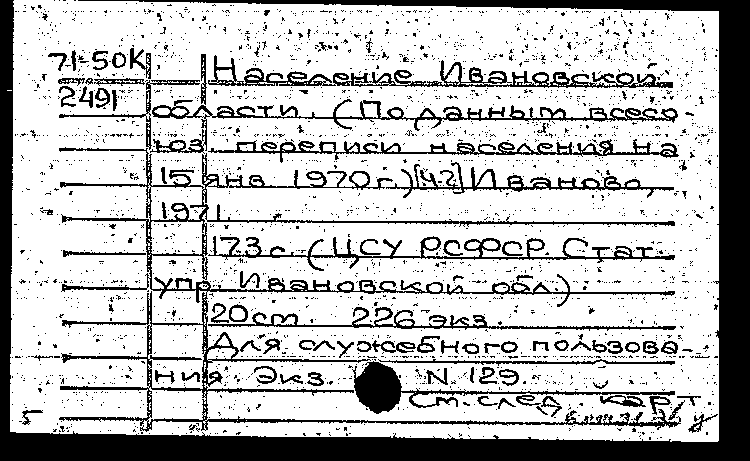 71-50К Население Ивановской
2491 области. (По данным всесо-
юз. переписи населения на
15 янв. 1970 г.) [ч 2] Иваново,
1971.
173 с. (ЦСУ РСФСР. Стат.
упр. Ивановской обл.)
20 см. 226 экз.
Для служебного пользова-
ния. Экз. N 129.
См. след. карт.
5